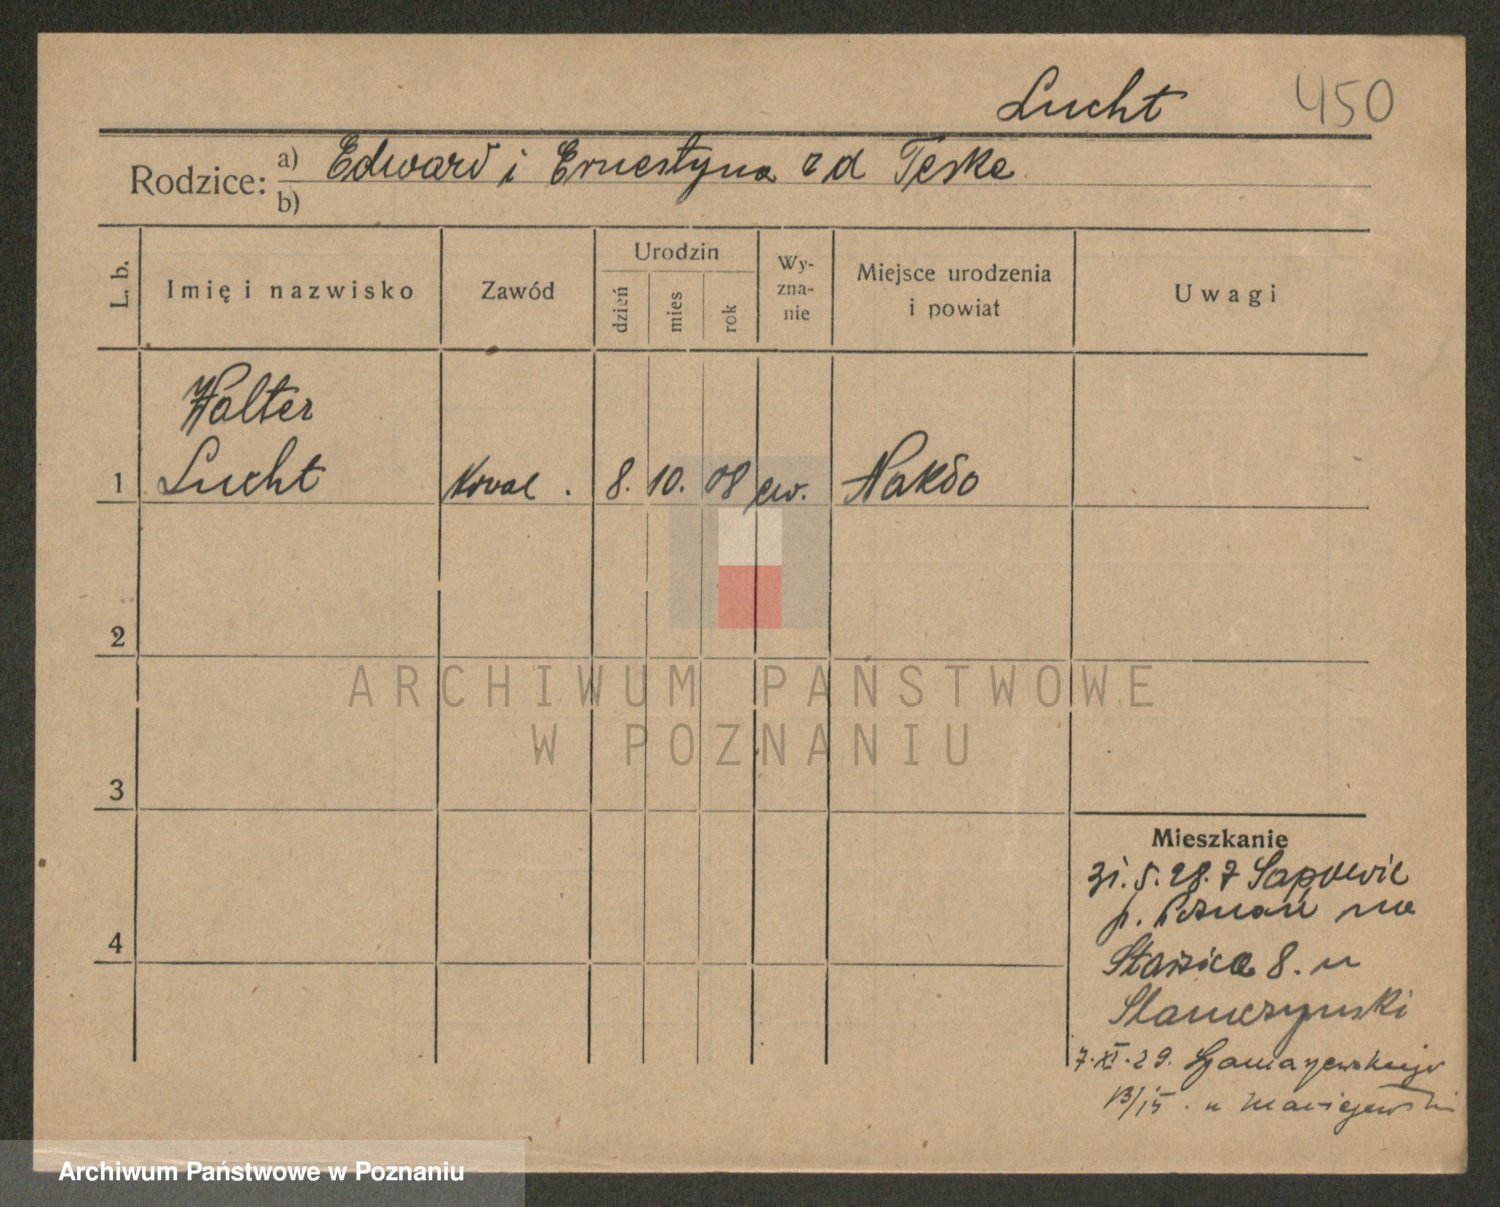 Lucht 450
Rodzice: a) Edward i Ernestyna zd Teske
b)
L. b. Imię i nazwisko Zawód Urodzin dzień mies rok Wyznanie Miejsce urodzenia i powiat Uwagi
Walter
1 Lucht Koval. 8. 10. 08 ew. Nakło
2
ARCHIWUM PAŃSTWOWE
W POZNANIU
3
Mieszkanie
31. 5. 28. z
p. Poznań na
4
Staszica 8. u
7. XI. 29.
u Maciejewski
Archiwum Państwowe w Poznaniu